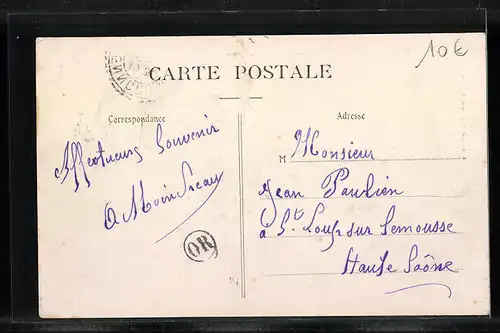 10€
CARTE POSTALE
Correspondance
Adresse
Affectueux Souvenir
M Monsieur
Jean Paulien
à St. Loup sur Semousse
Haute Saône
OR